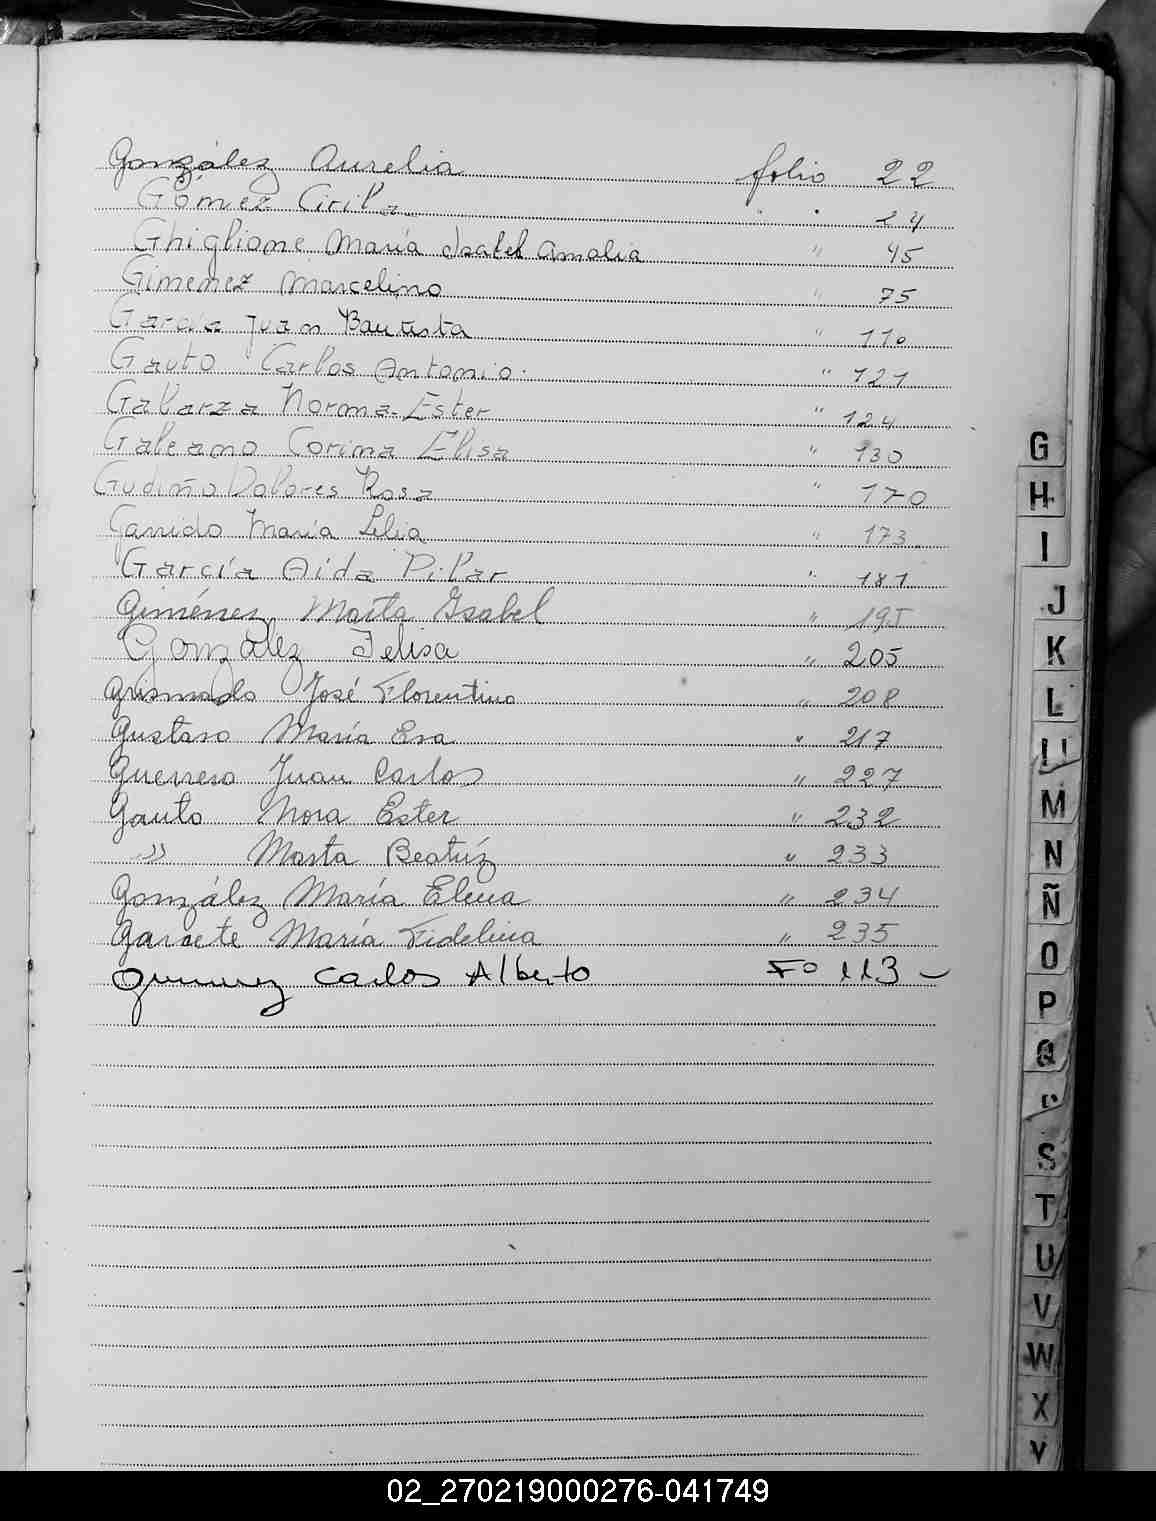 González Aurelia folio 22
Gómez Cirila " " 24
Ghiglione María Isabel Amalia " 45
Gimenez Marcelino " 75
García Juan Bautista " 110
Gauto Carlos Antonio. " 121
Galarza Norma Ester " 124
Galeano Corina Elisa " 130
Gudiño Dolores Rosa " 170
Garrido María Lelia " 173
García Aida Pilar " 181
Giménez Marta Isabel " 195
González Felisa " 205
Grismado José Florentino " 208
María Eva " 217
Guerrero Juan Carlos " 227
Gauto Nora Ester " 232
" Marta Beatríz " 233
González María Elena " 234
Garcete María Fidelina " 235
Carlos Alberto Fo 113 -
G
H
I
J
K
L
Ll
M
N
Ñ
O
P
Q
S
T
U
V
W
X
02_270219000276-041749